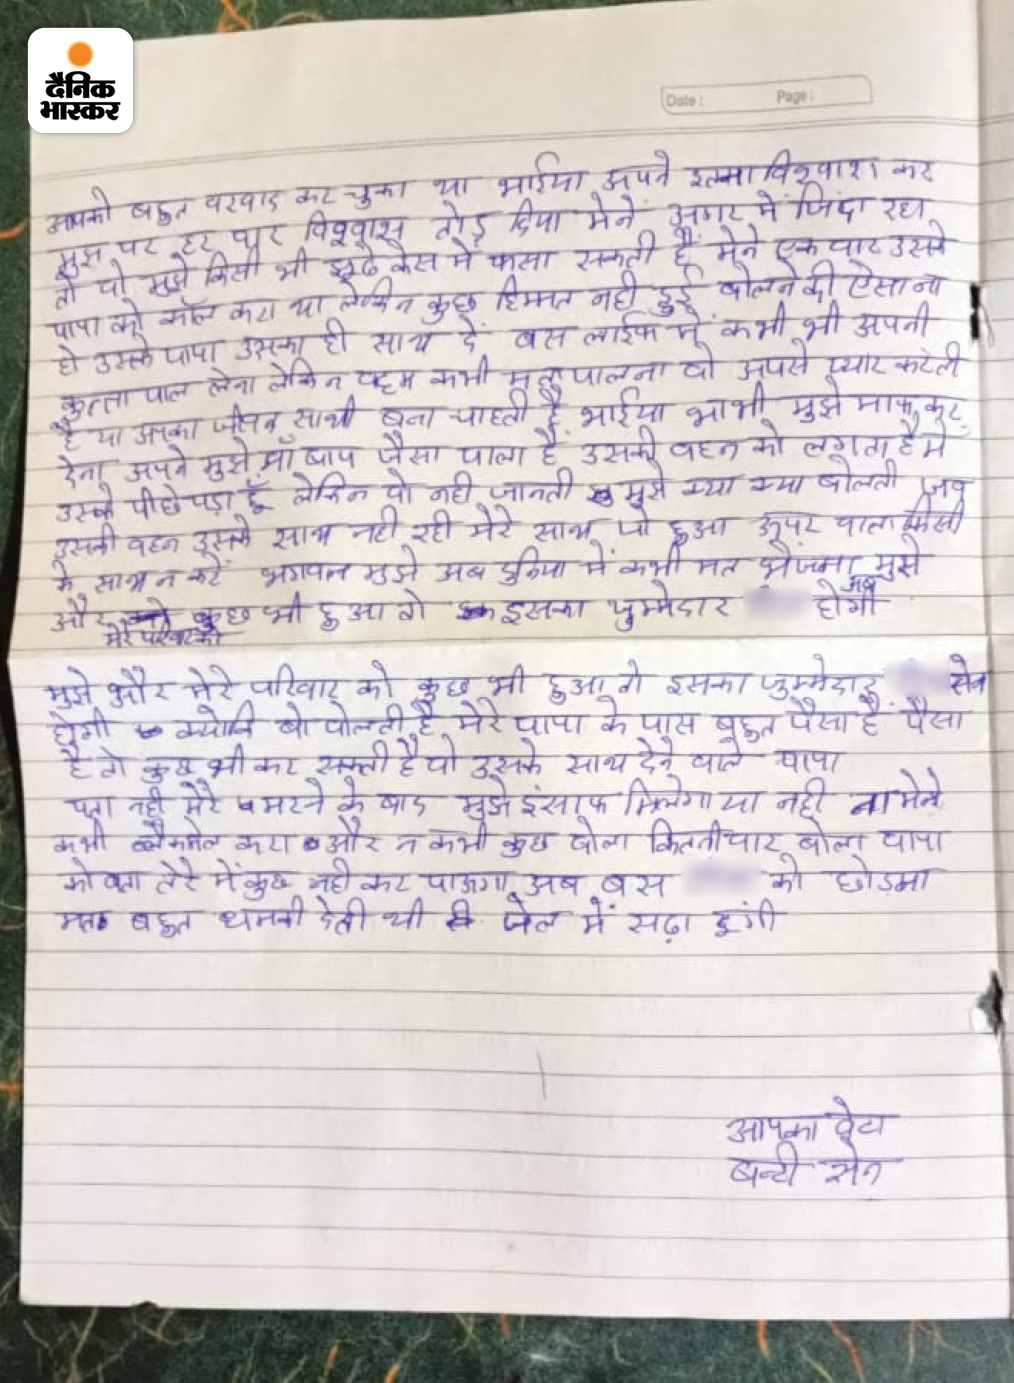 दैनिक
भास्कर
Date : Page :
आपको बहुत बरबाद कर चुका था भाईया अपने इतना विश्वाश कर
मुझ पर हर बार विश्वास तोड़ दिया मेने अगर में जिंदा रहा
तो वो मुझे किसी भी झूठे केस में फसा सकती है मेने एक बार उसके
पापा को कॉल करा था लेकिन कुछ हिम्मत नही हुई बोलने की ऐसा ना
हो उसके पापा उसका ही साथ दें बस लाईफ में कभी भी अपनी
कुत्ता पाल लेना लेकिन वहम कभी मत पालना वो अपसे प्यार करती
है या अपका जीवन साथी बना चाहती है भाईया भाभी मुझे माफ कर
देना अपने मुझे माँ बाप जैसा पाला है उसकी बहन को लगता है मे
उसके पीछे पड़ा हूँ लेकिन वो नही जानती मुझे क्या क्या बोलती जब
उसकी बहन उसके साथ नही रही मेरे साथ जो हुआ ऊपर वाला किसी
के साथ न करें भगवान मुझे अब दुनिया में कभी मत भेजना मुझे
और कुछ भी हुआ तो इसका जुम्मेदार अब होगी
मेरे परिवार को
मुझे और मेरे परिवार को कुछ भी हुआ तो इसका जुम्मेदार सेन
होगी क्योकि बो बोलती है मेरे पापा के पास बहुत पैसा है पैसा
है तो कुछ भी कर सकती है वो उसके साथ देने वाले पापा
पता नही मेरे मरने के बाद मुझे इंसाफ मिलेगा या नही ना मेने
कभी ब्लैकमेल करा और न कभी कुछ बोला कितनी बार बोला पापा
को बता तेरे में कुछ नही कर पाऊगा अब बस को छोड़ना
मत बहुत धमकी देती थी जेल में सढ़ा दूगी
आपका बेटा
बन्टी सेन